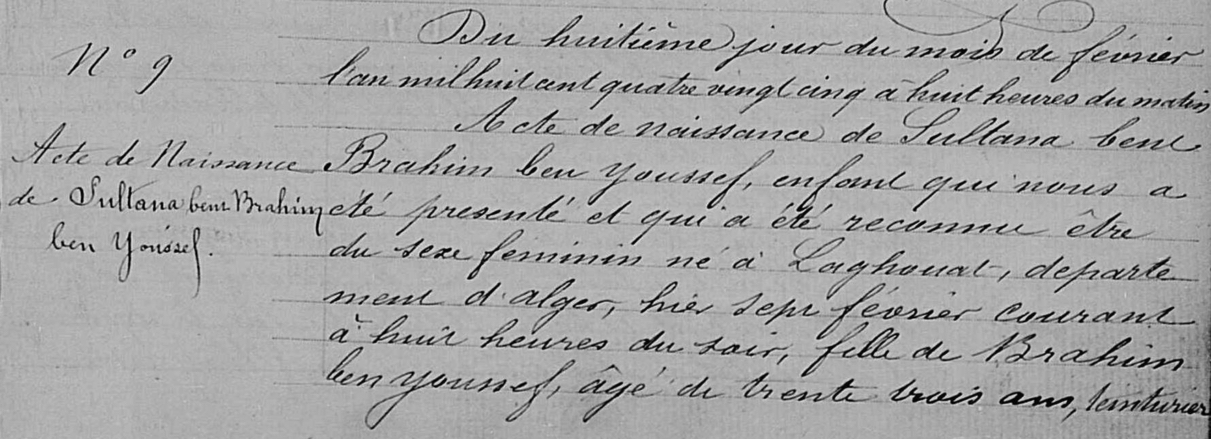 N° 9
Acte de Naissance
de Sultana bent Brahim
ben Youssef.
Du huitième jour du mois de février
l'an mil huit cent quatre vingt cinq à huit heures du matin
Acte de naissance de Sultana bent
Brahim ben Youssef, enfant qui nous a
été presenté et qui a été reconnu être
du sexe feminin né à Laghouat, departe
ment d'alger, hier sept février courant
à huit heures du soir, fille de Brahim
ben youssef, âgé de trente trois ans, teinturier